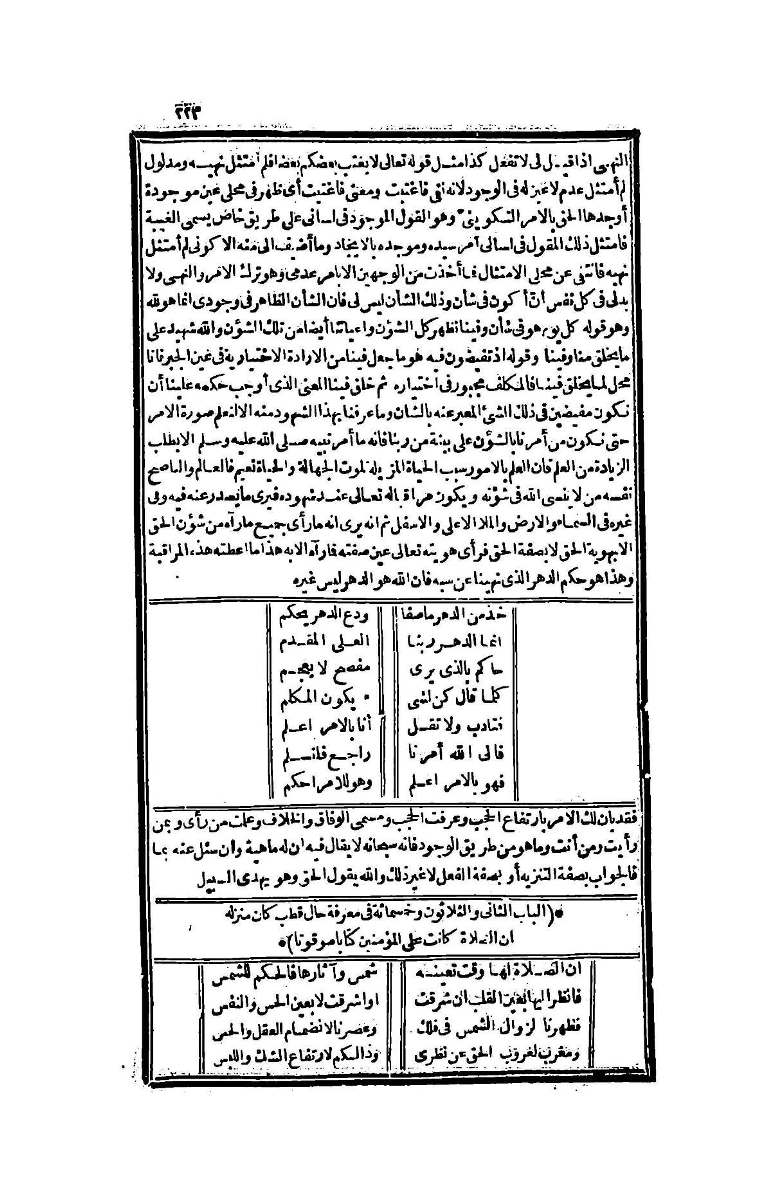 ٢٢٣
النهى اذا قيل لى لا تفعل كذا مثل قوله تعالى لا يغتب بعضكم بعضا فلم أمتثل نهيه ومدلول
لم أمتثل عدم لا عين له فى الوجود لانه نفى فاغتبت ومعنى فاغتبت أى ظهر فى محلى عين موجودة
أوجدها الحق بالامر التكوينى وهو القول الموجود فى لسانى على طريق خاص يسمى الغيبة
فامتثل ذلك المقول فى لسانى أمر سيده وموجده بالايجاد وما أضيف الى منه الا كونى لم أمتثل
نهيه فانتفى عن محلى الامتثال فما أخذت من الوجهين الا بامر عدمى وهو ترك الامر والنهى ولا
بد لى فى كل نفس أن أكون فى شأن وذلك الشأن ليس لى فان الشأن الظاهر فى وجودى انما هو لله
وهو قوله كل يوم هو فى شأن وفينا تظهر كل الشؤن واعياننا أيضا من تلك الشؤن والله شهيد على
ما يخلق منا وفينا وقوله اذ تفيضون فيه هو ما جعل فينا من الارادة الاختيارية فى عين الجبر فانا
محل لما يخلق فينا فالمكلف مجبور فى اختياره ثم خلق فينا المعنى الذى أوجب حكمه علينا أن
نكون مفيضين فى ذلك الشئ المعبر عنه بالشان وما عرفنا بهذا الشهود منه الا لنعلم صورة الامر
حتى نكون من أمرنا بالشؤن على بينة من ربنا فانه ما أمر نبيه صلى الله عليه وسلم الا بطلب
الزيادة من العلم فان العلم بالامور سبب الحياة المزيلة لموت الجهالة والحياة نعيم فالعالم والناصح
نفسه من لا ينسى الله فى شؤنه ويكون مراقبا له تعالى عند شهوده فيرى ما يصدر عنه فيه وفى
غيره فى السماء والارض والملا الاعلى والاسفل ثم انه يرى انه ما رأى جميع ما رآه من شؤن الحق
الا بهوية الحق لا بصفة الحق فرأى هويته تعالى عين صفته فما رآه الا به هذا ما أعطته هذه المراقبة
وهذا هو حكم الدهر الذى نهينا عن سبه فان الله هو الدهر ليس غيره
خذ من الدهر ما صفا ودع الدهر يحكم
انما الدهر ربنا العلى المقدم
حاكم بالذى يرى مفصح لا يعجم
كلما قال كن لشى ء يكون المكلم
فتادب ولا تقل أنا بالامر اعلم
فالى الله أمرنا راجع فلنسلم
فهو بالامر اعلم وهو للامر احكم
فقد بان لك الامر بارتفاع الحجب وعرفت الحجب ومسمى الوفاق والخلاف وعلمت من رأى وبمن
رأيت ومن أنت وما هو من طريق الوجود فانه سبحانه لا يقال فيه ان له ماهية وان سئل عنه بما
فالجواب بصفة التنزيه أو بصفة الفعل لا غير ذلك والله يقول الحق وهو يهدى السبيل
*(الباب الثانى والثلاثون وخمسمائة فى معرفة حال قطب كان منزله
ان الصلاة كانت على المؤمنين كتابا موقوتا)*
ان الصلاة لها وقت تعينه شمس وآثارها فالحكم للشمس
فانظر اليها بعين القلب ان شرقت او اشرقت لا بعين الحس والنفس
فظهرنا لزوال الشمس فى فلك وعصرنا لانضمام العقل والحس
ومغرب لغروب الحق عن نظرى وذا لكم لارتفاع الشك واللبس